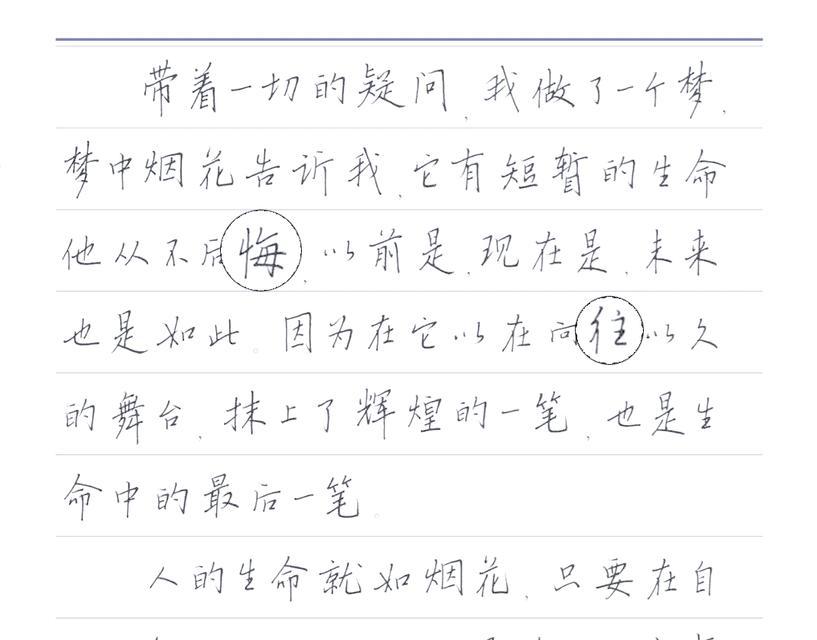 带着一切的疑问，我做了一个梦，
梦中烟花告诉我，它有短暂的生命
他从不后悔，以前是，现在是，未来
也是如此。因为在它以在向往以久
的舞台，抹上了辉煌的一笔，也是生
命中的最后一笔。
人的生命就如烟花，只要在自